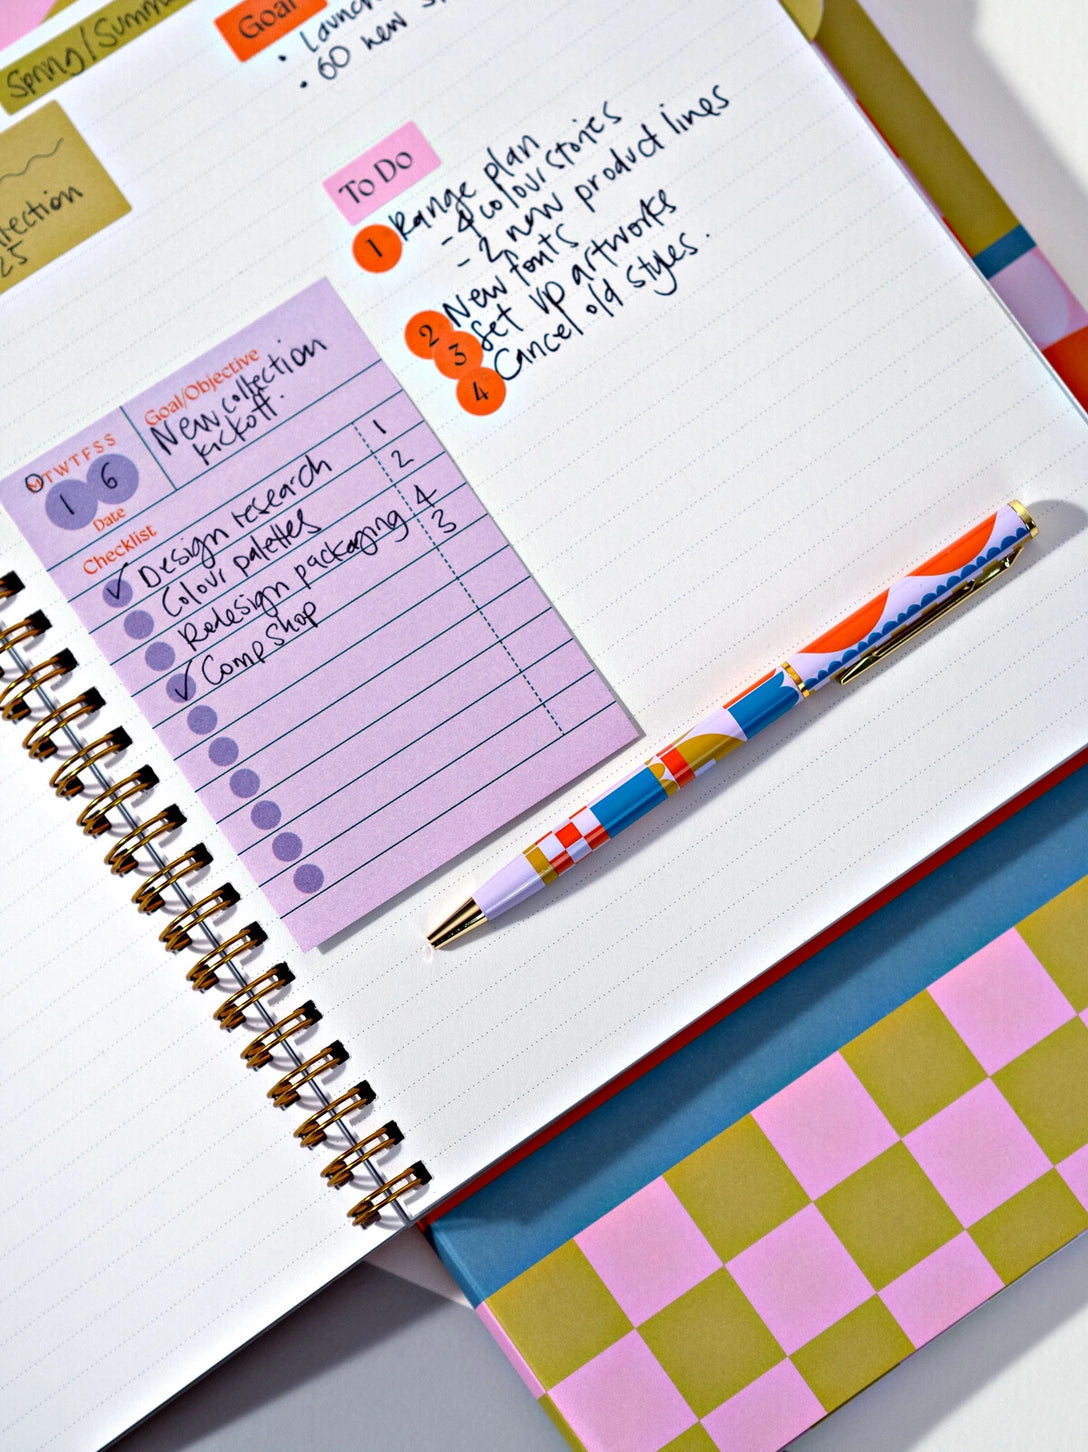 Spring/Summ
Goal
• Launch
• 60 new
25
To Do
1 Range plan
- 4 colour stories
- 2 new product lines
2 New fonts
3 Set up artworks
4 Cancel old styles.
MTWTFSS
1 6
Date
Goal/Objective
New collection
kickoff.
Checklist
✓ Design research 1
Colour palettes 2
Redesign packaging 4
✓ Comp Shop 3